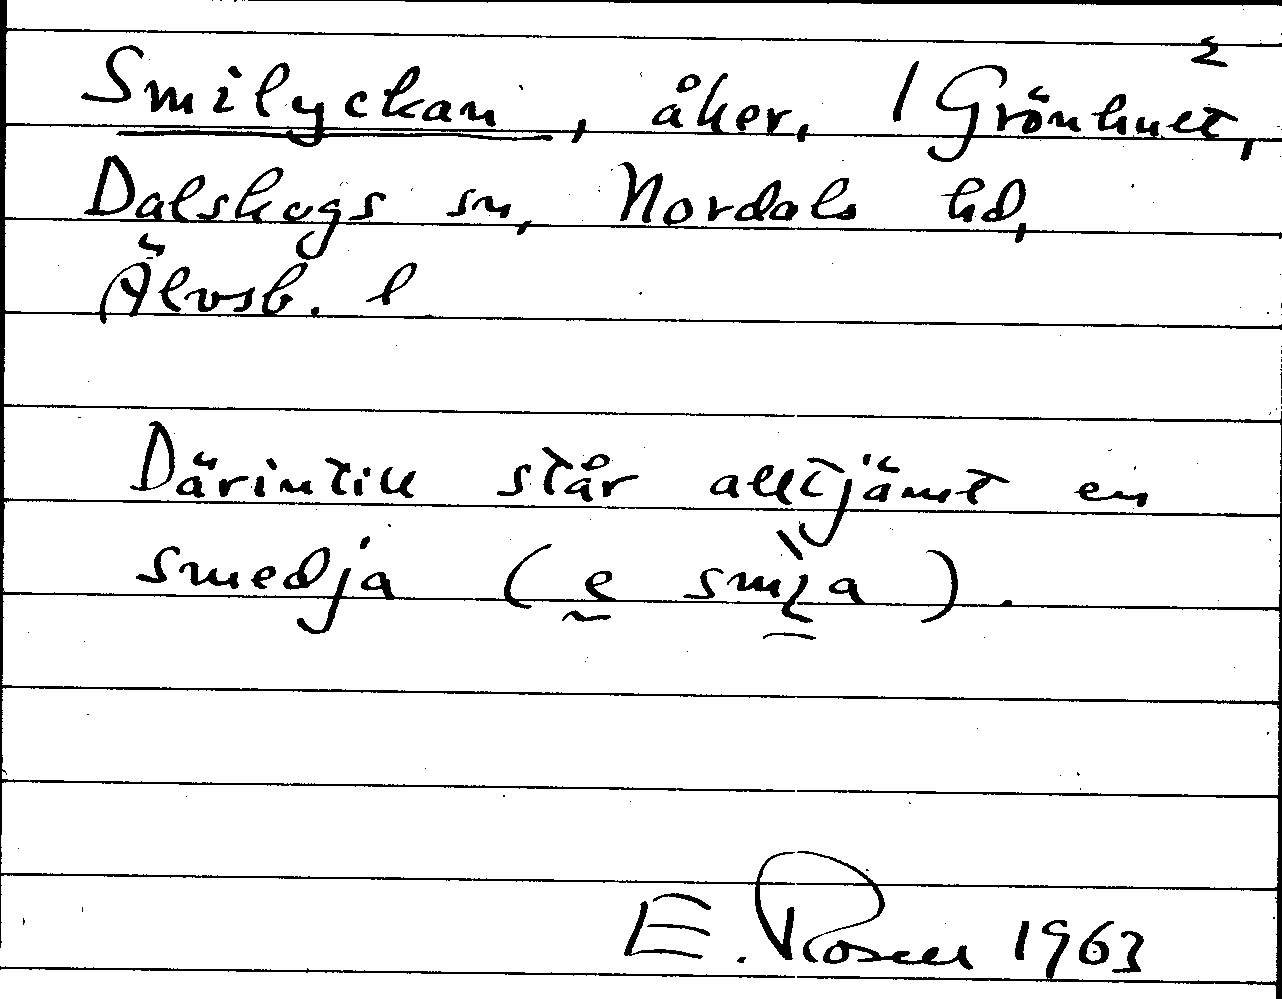 2
Smilyckan, åker, 1 Grönhult,
Dalskogs sn, Nordals hd,
Älvsb. l
Därintill står alltjämt en
smedja (e smia).
E. Rosell 1963